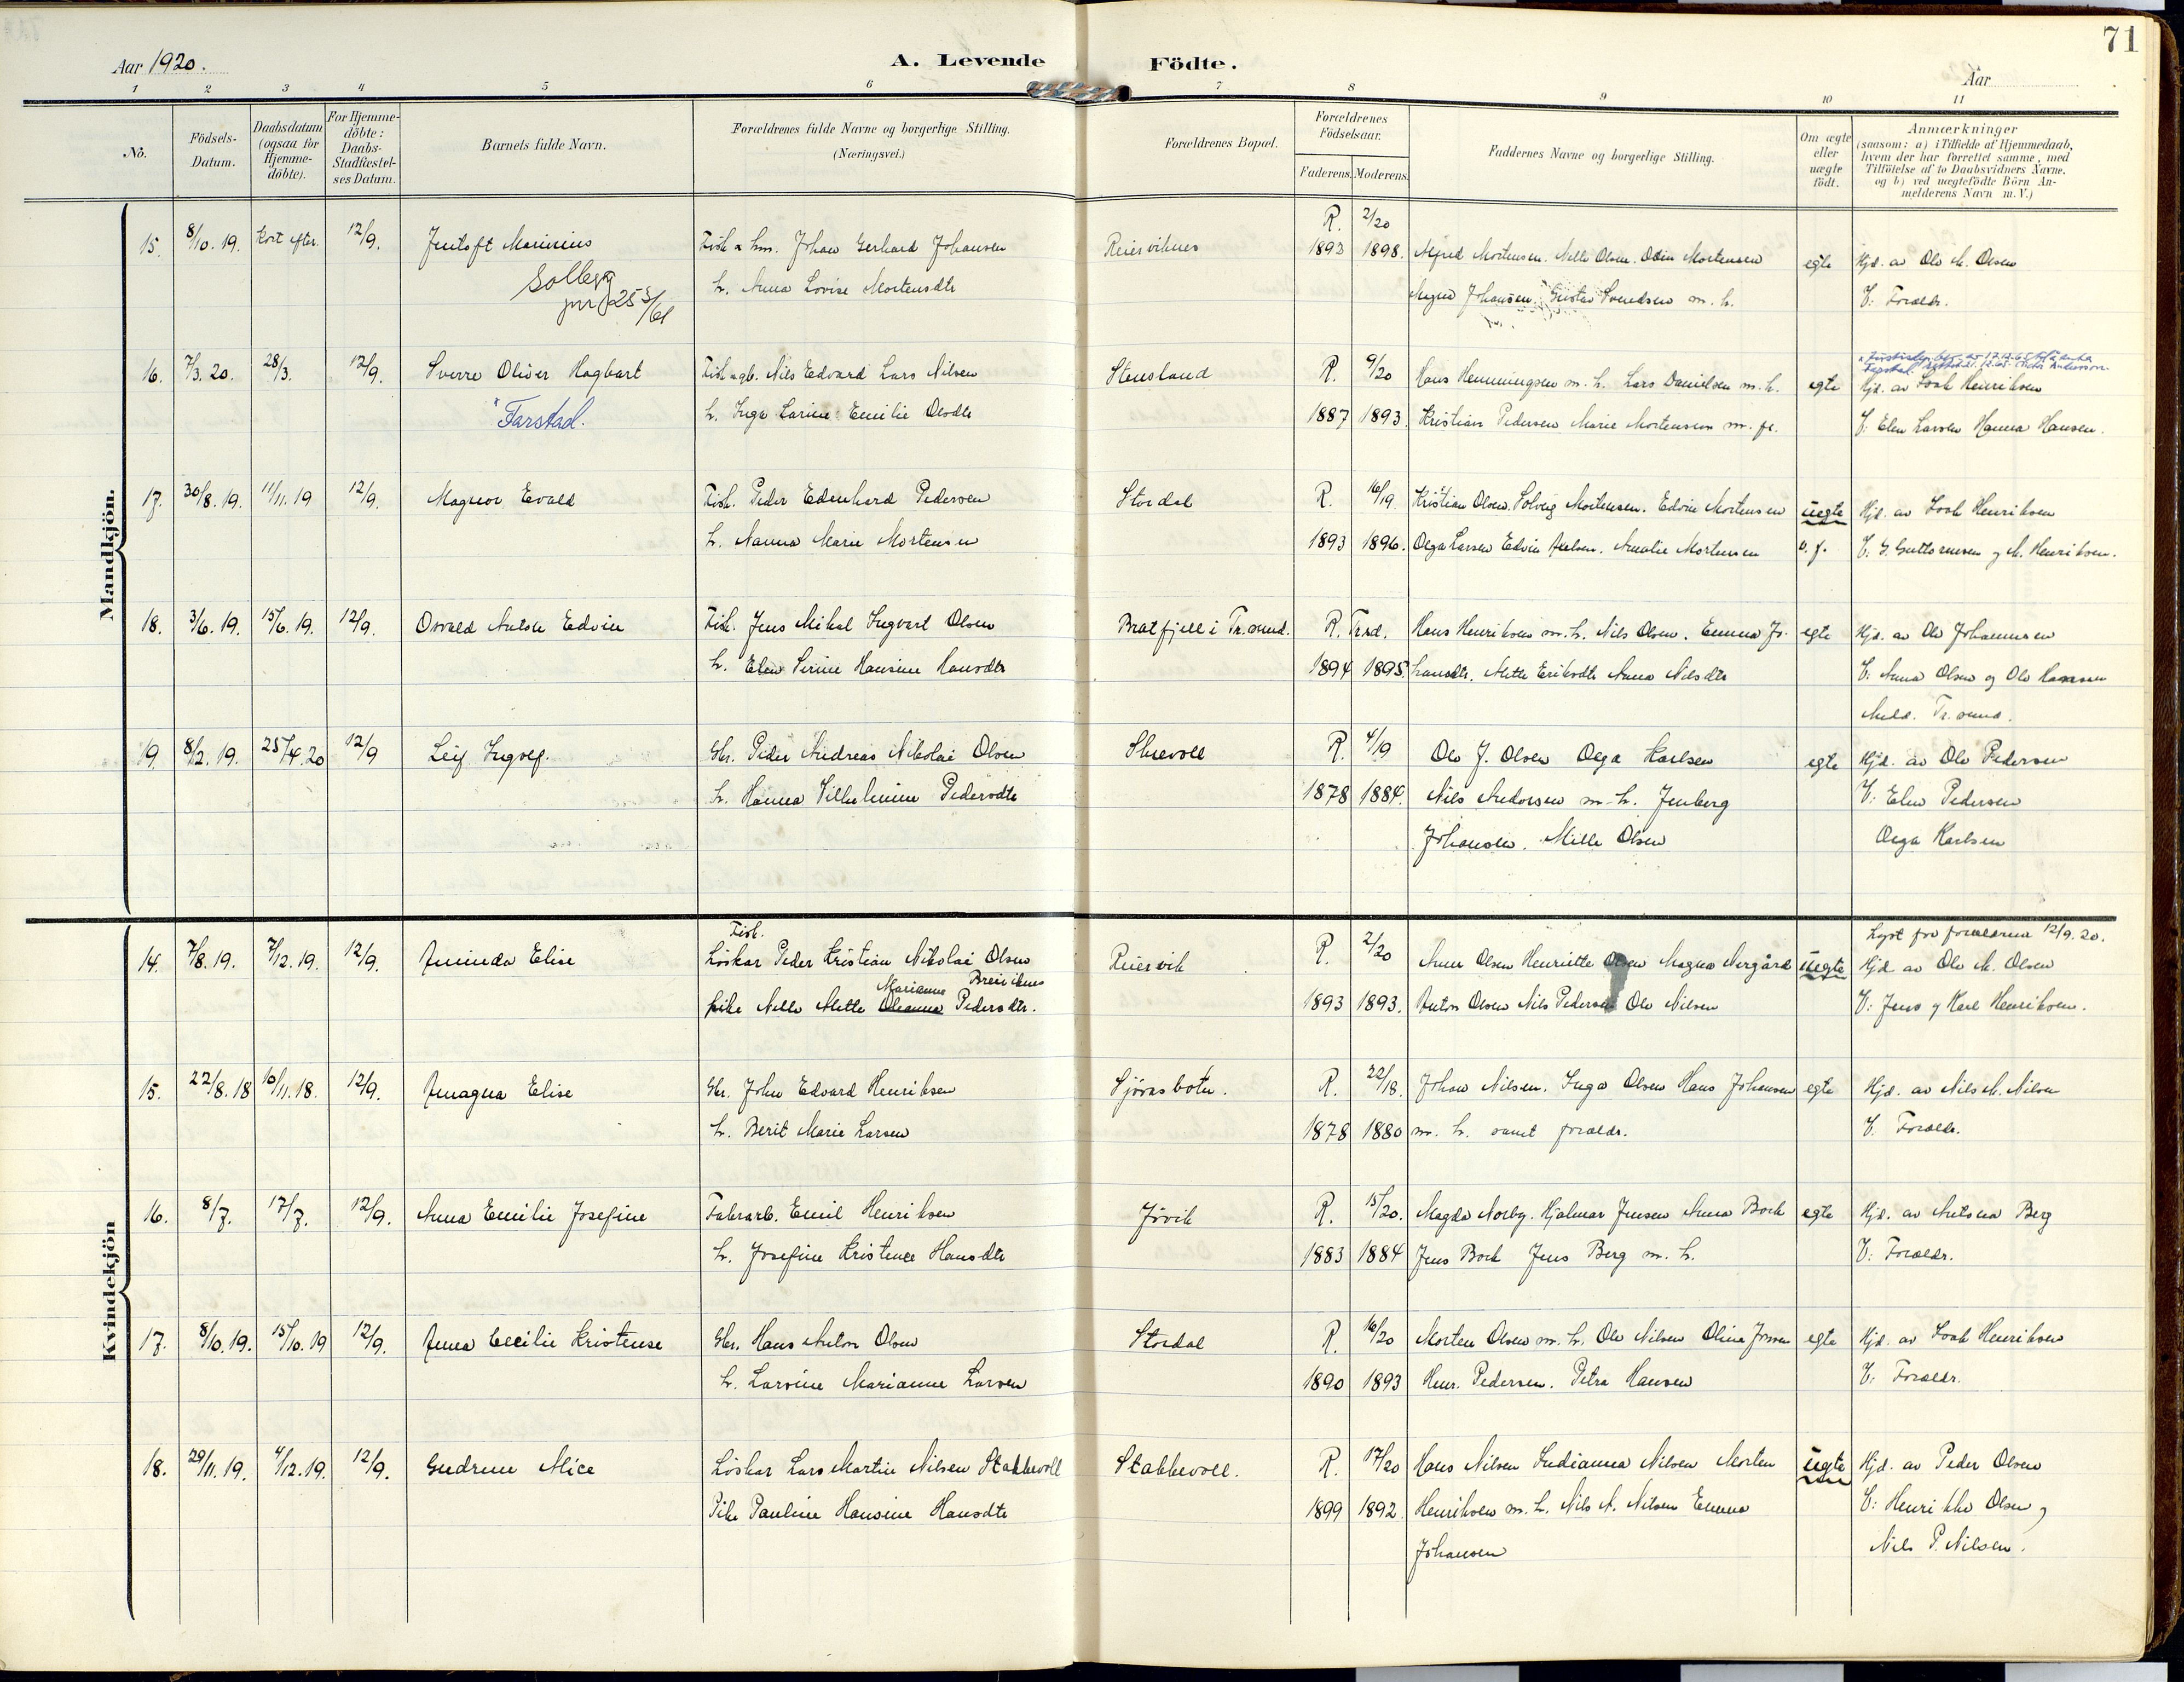 71
Aar 1920. A. Levende Födte. Aar
1 2 3 4 5 6 7 8 9 10 11
No.
Födsels-Datum.
Daabsdatum (ogsaa for Hjemme-döbte).
For Hjemme-döbte: Daabs-Stadfæstel-ses Datum.
Barnets fulde Navn.
Forældrenes fulde Navne og borgerlige Stilling.
(Næringsvei.)
Forældrenes Bopæl.
Forældrenes Födselsaar.
Faderens. Moderens.
Faddernes Navne og borgerlige Stilling.
Om ægte eller uægte födt.
Anmærkninger
(saasom: a) i Tilfælde af Hjemmedaab,
hvem der har forrettet samme, med
Tilföielse af to Daabsvidners Navne,
og b) ved uægtefödte Börn An-
melderens Navn m. V.)
Mandkjön.
R. 2/20
15. 8/10. 19. Kort efter. 12/9. Jentoft Marinius Fisk & hm. Johan Gerhard Johansen Reiersviknes 1893 1898. Alfred Mortensen. Nelle Olsen. Odin Mortensen egte Hjd. av Ole M. Olsen
Solberg h. Anna Lovise Mortensdtr Johansen. Gustav Svendsen m. h. V: Foreldr.
16. 7/3. 20. 28/3. 12/9. Sverre Oliver Hagbart Fisk & gb. Nils Edvard Lars Nilsen Stensland R. 9/20 Hans Henningsen m. h. Lars Danielsen m. h. egte Hjd. av Isak Henriksen
x Farstad. h. Inga Larine Emilie Olsdtr 1887 1893. Kristian Pedersen Marie Mortensen m. fl. V: Elen Larsen Hanna Hansen.
17. 30/8. 19. 11/11. 19 12/9. Magnor Evald Fisk. Peder Edenhard Pedersen Stordal R. 16/19. Kristian Olsen. Solveig Mortensen. Edvin Mortensen uegte Hjd. av Isak Henriksen
h. Nanna Marie Mortensen 1893 1896. Olga Larsen Edvin Amalie Mortensen o. f. V. S. Guttormsen og M. Henriksen.
18. 3/6. 19. 15/6. 19. 12/9. Osvald Anton Edvin Fisk. Jens Mikal Ingvart Olsen Bratfjell i Tr.sund. R. Tr.sd. Hans Henriksen m. h. Nils Olsen. Emma Jo- egte Hjd. av Ole Johannesen
h. Elen Serine Hansine Hansdtr 1894 1895. hansdtr. Mette Eriksdtr Anna Nilsdtr V: Anna Olsen og Ole Hansen
Meld. Tr.sund.
19. 8/2. 19. 25/4. 20 12/9 Leif Ingolf. Gbr. Peder Andreas Nikolai Olsen Skrevoll R. 4/19 Ole J. Olsen Olga Karlsen egte Hjd. av Ole Pedersen
h. Hanna Vilhelmine Pedersdtr 1878 1884. Nils Andersen m. h. Jenberg V: Elen Pedersen
Johansen. Mille Olsen Olga Karlsen
Kvindekjön
Fisk. Lyst fra forældrene 12/9. 20.
14. 7/8. 19. 7/12. 19. 12/9. Aminda Elise Löskar Peder Kristian Nikolai Olsen Reiersvik R. 2/20 Anne Olsen Henriette Olsen Magna Nergård uegte Hjd. av Ole M. Olsen
Marianne Breiviknes
pike Nelle Mette Oleanna Pedersdtr. 1893 1893. Anton Olsen Nils Pedersen Ole Nilsen V: Jens og Karl Henriksen.
15. 22/8. 18 10/11. 18. 12/9. Amagna Elise Gbr. John Edvard Henriksen Sjöråsbotn. R. 22/18. Johan Nilsen. Inga Olsen Hans Johansen egte Hjd. av Nils M. Nilsen
h. Berit Marie Larsen 1878 1880 m. h. samt foreldr. V. Foreldr.
16. 8/7. 17/7. 12/9. Anna Emilie Josefine Fabrarb. Emil Henriksen Jövik R. 15/20. Magda Norby. Hjalmar Jensen Anna Bock egte Hjd. av Antona Berg
h. Josefine Kristence Hansdtr 1883 1884 Jens Bock Jens Berg m. h. V: Foreldr.
17. 8/10. 19. 15/10. 19 12/9. Anna Cecilie Kristense Gbr. Hans Anton Olsen Stordal R. 16/20 Morten Olsen m. h. Ole Nilsen Olina Jensen egte Hjd. av Isak Henriksen
h. Larsine Marianne Larsen 1890 1893 Henr. Pedersen. Petra Hansen V: Foreldr.
18. 29/11. 19. 4/12. 19. 12/9. Gudrun Alice Löskar Lars Martin Nilsen Stakkevoll Stakkevoll. R. 17/20 Hans Nilsen Indianna Nilsen Morten uegte Hjd. av Peder Olsen
Pike Pauline Hansine Hansdtr 1899 1892. Henriksen m. h. Nils A. Nilsen Emma V: Henrikke Olsen og
Johansen Nils P. Nilsen.